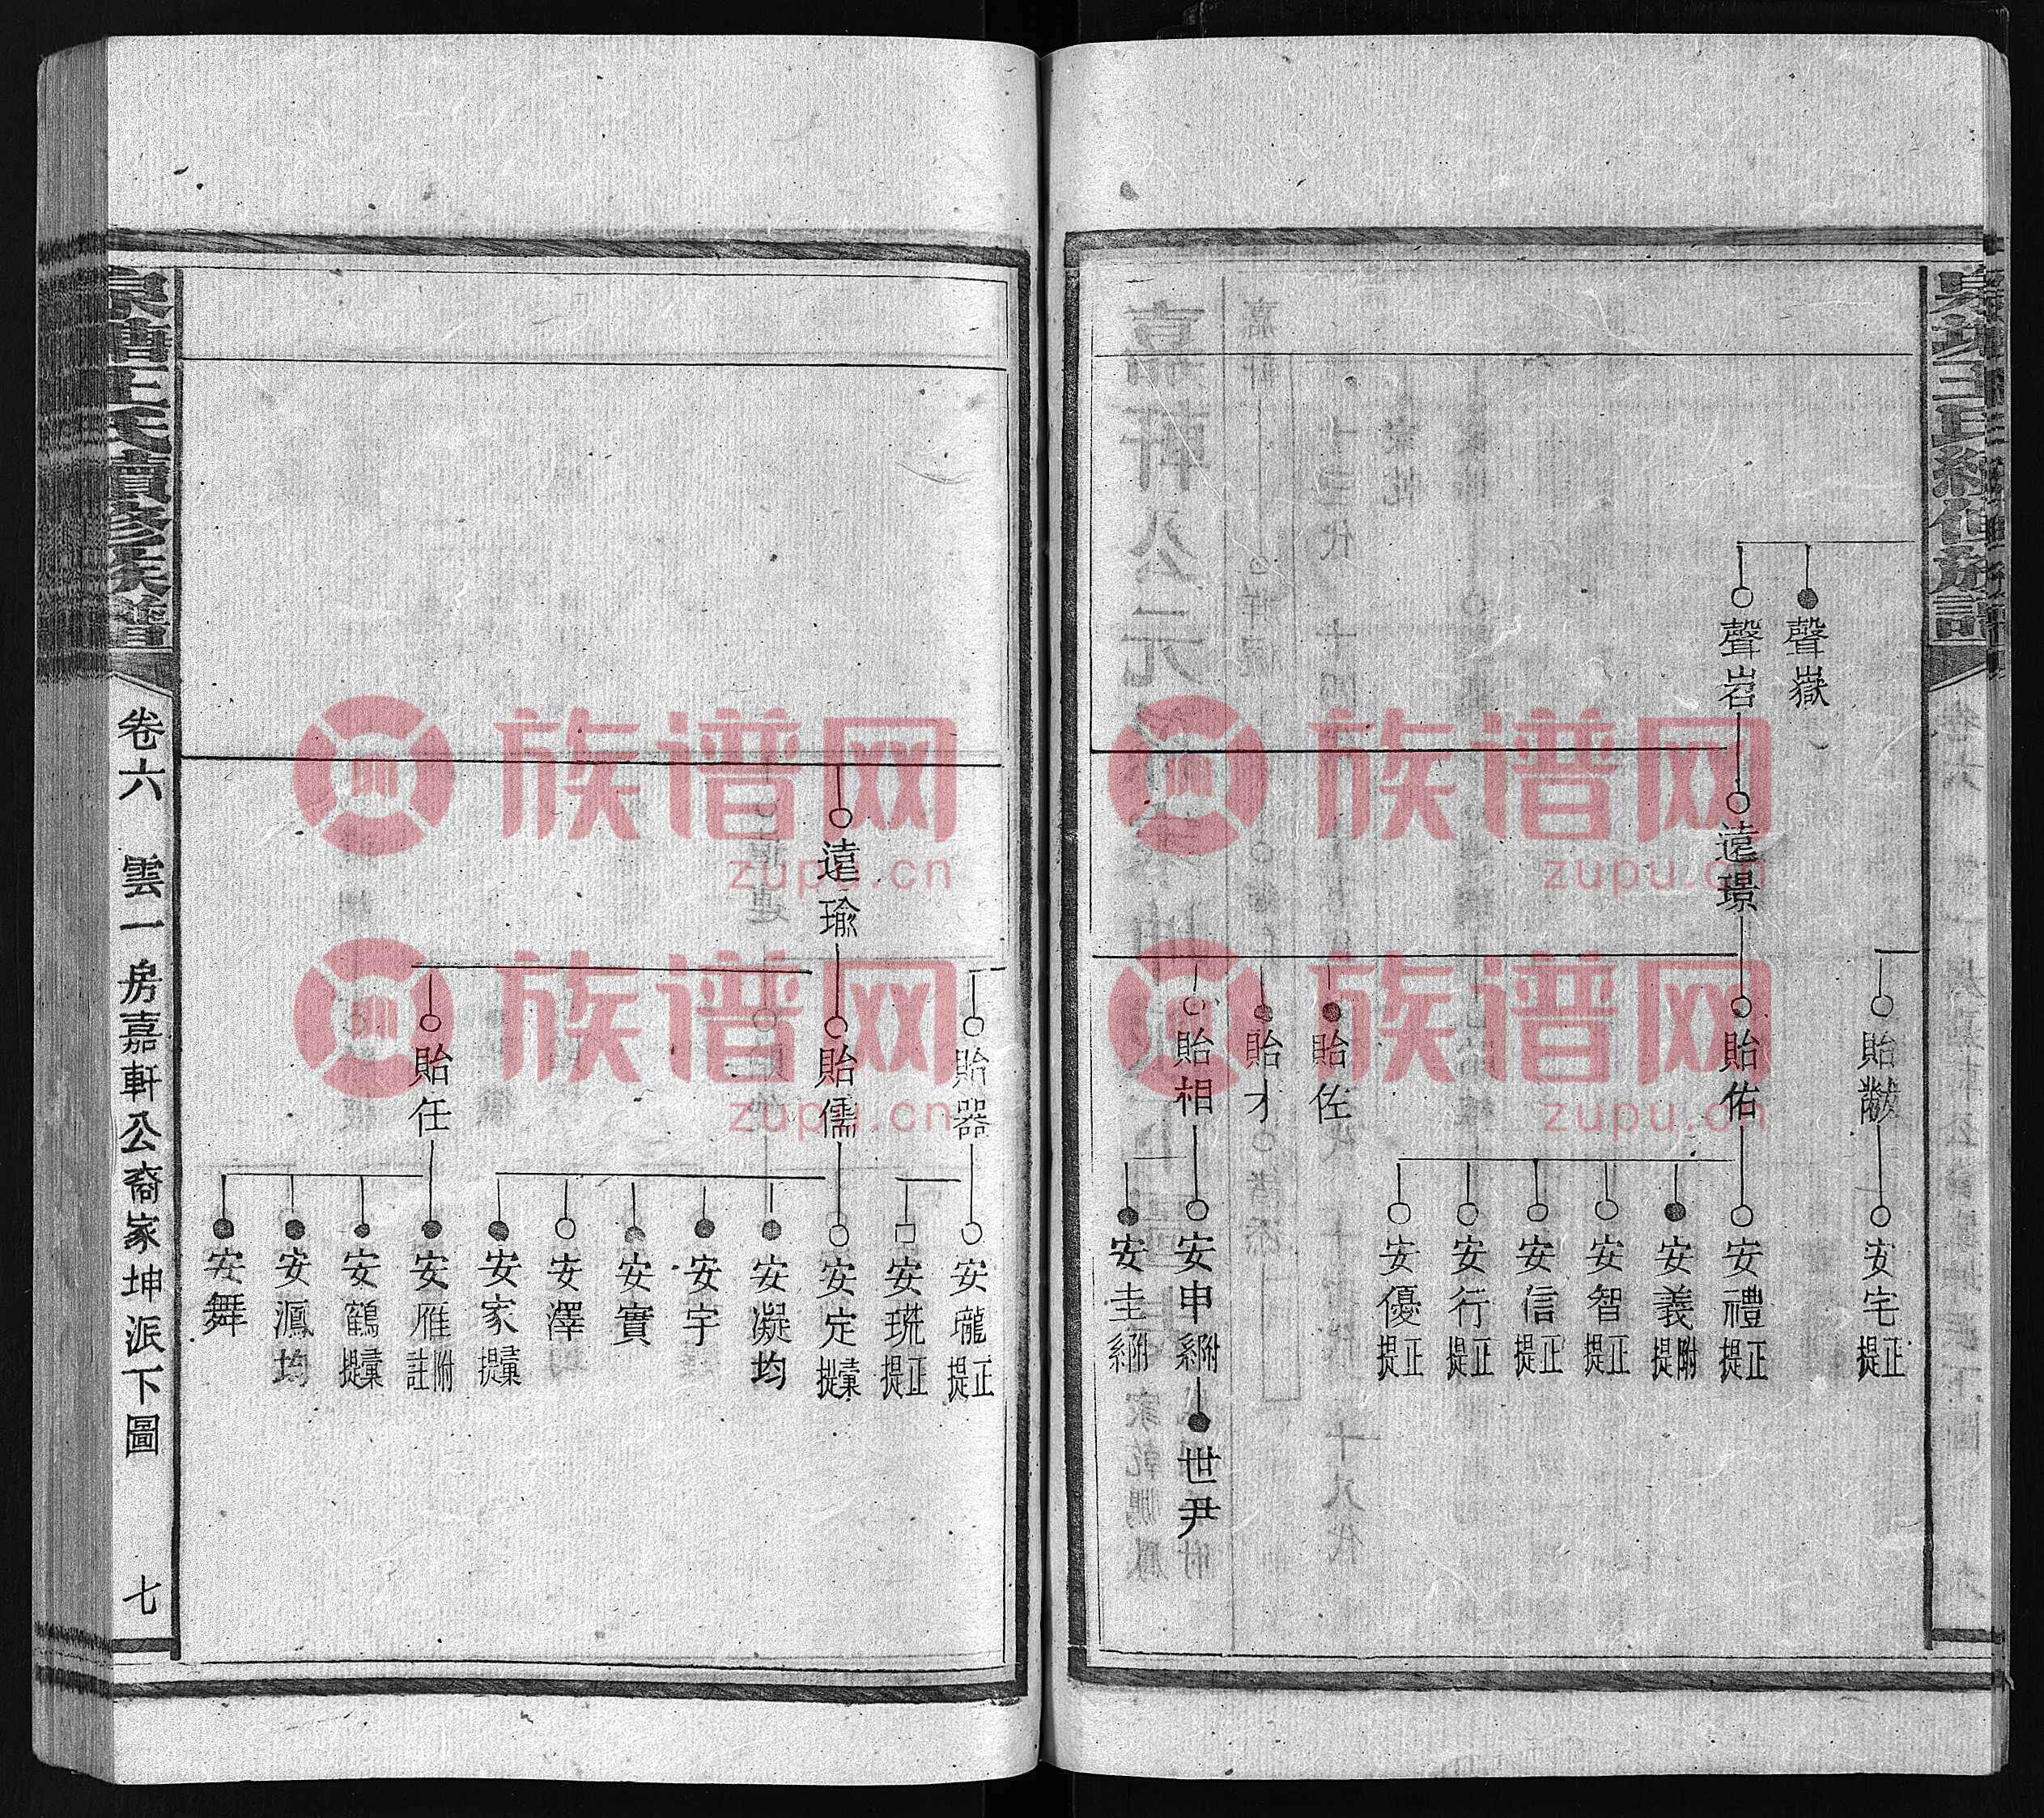 聲嶽
聲岩
遠璟
貽黻
貽佑
貽佐
貽才
貽相
安宅正提
安禮正提
安義附提
安智正提
安信正提
安行正提
安優正提
安申附紹
世尹
安圭附紹
遠瑜
貽器
貽儒
貽任
安瓏正提
安珗正提
安定稾提
安凝均
安宇
安實
安澤
安家稾提
安雁附註
安鶴稾提
安鳳均
安舞
王氏續修族譜
卷六 雲一房嘉軒公裔家坤派下圖 七
族谱网
zupu.cn
族谱网
zupu.cn
族谱网
zupu.cn
族谱网
zupu.cn